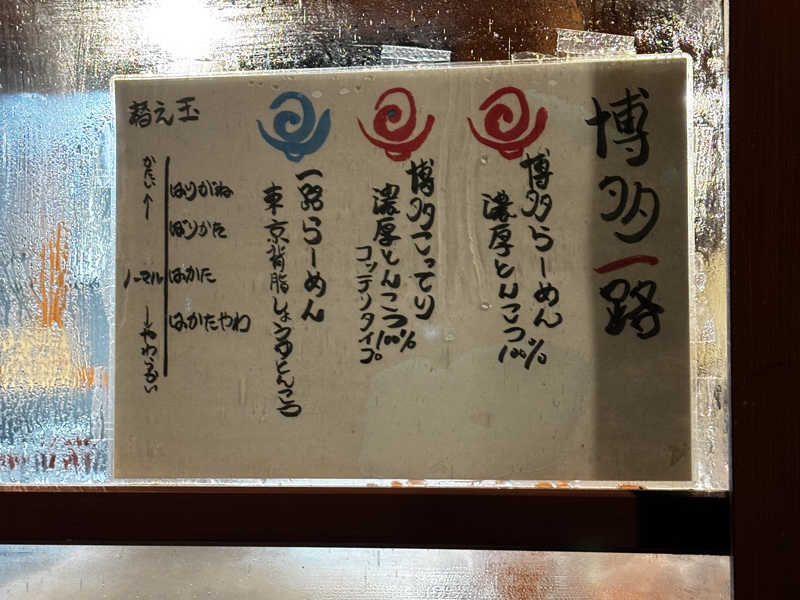 博多一路
博多らーめん
濃厚とんこつ100%
博多こってり
濃厚とんこつ100%
コッテリタイプ
一路らーめん
東京背脂しょうゆとんこつ
替え玉
かたい↑
はりがね
ばりかた
ノーマル
はかた
はかたやわ
↓やわらかい